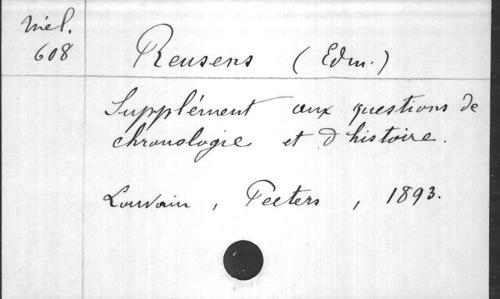 Mél.
608
Reusens (Edm.)
Supplément aux questions de
chronologie et d'histoire.
Louvain, Peeters, 1893.